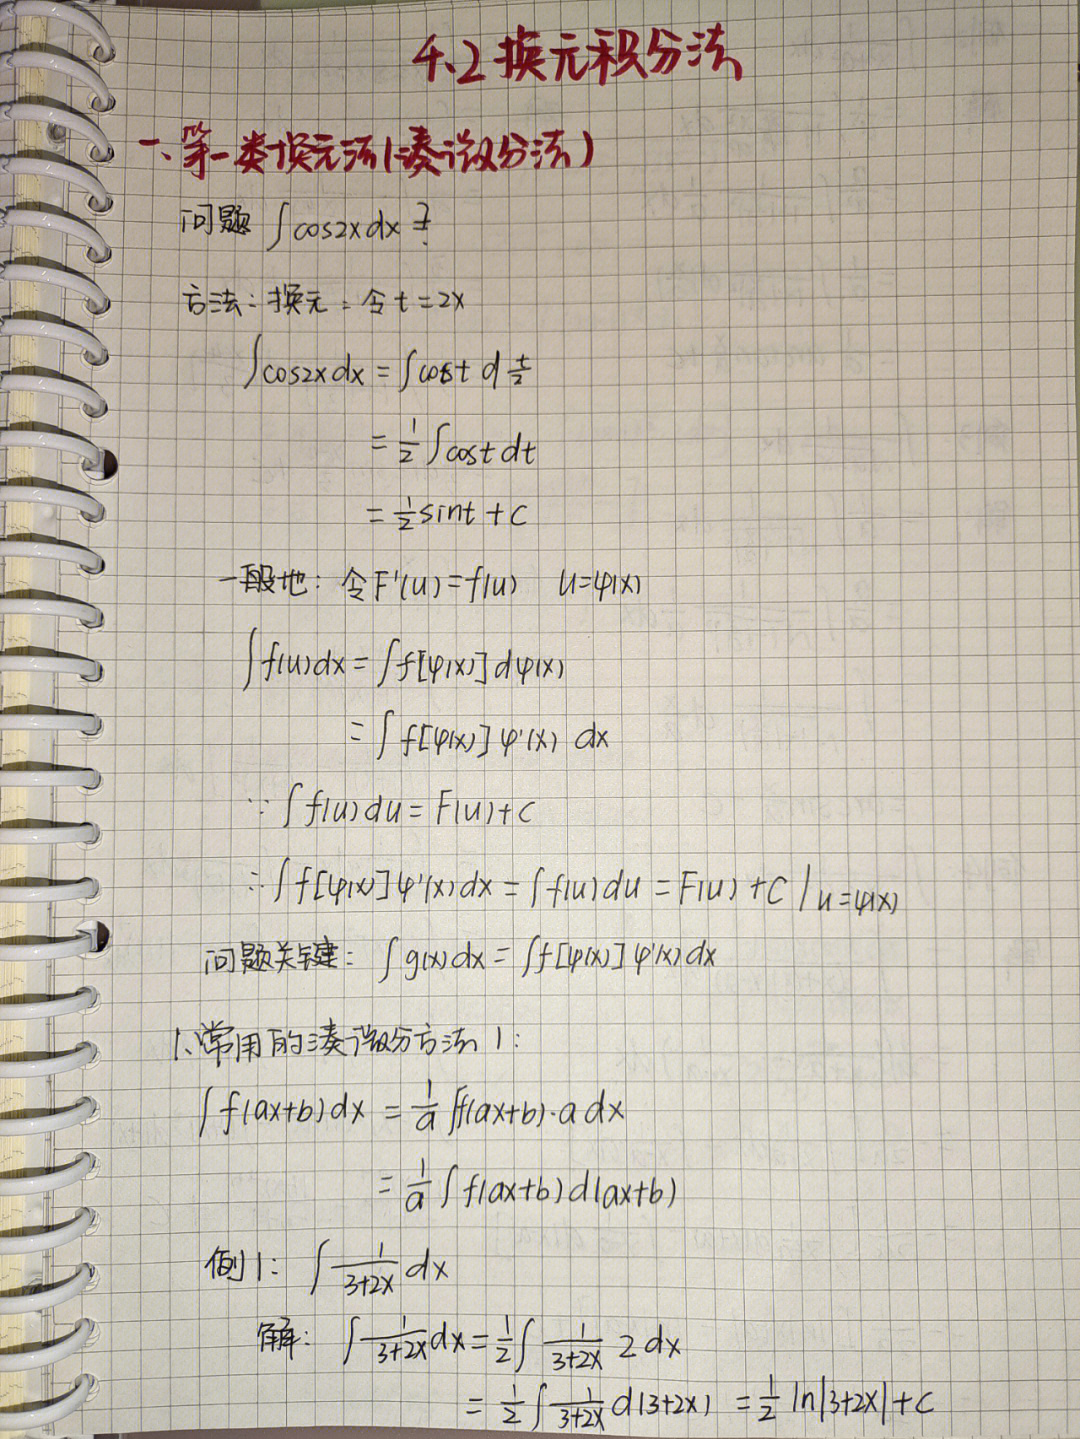 4.2 换元积分法
一、第一类换元法(凑微分法)
问题 ∫cos2xdx ?
方法:换元:令t=2x
∫cos2xdx = ∫cost d t/2
= 1/2 ∫cost dt
= 1/2 sint + C
一般地: 令F'(u)=f(u) u=φ(x)
∫f(u)dx = ∫f[φ(x)] dφ(x)
= ∫f[φ(x)] φ'(x) dx
∵ ∫f(u)du = F(u)+C
∴ ∫f[φ(x)]φ'(x)dx = ∫f(u)du = F(u)+C | u=φ(x)
问题关键: ∫g(x)dx = ∫f[φ(x)]φ'(x)dx
1、常用的凑微分方法1:
∫f(ax+b)dx = 1/a ∫f(ax+b)·a dx
= 1/a ∫f(ax+b)d(ax+b)
例1: ∫ 1/3+2x dx
解: ∫ 1/3+2x dx = 1/2 ∫ 1/3+2x 2dx
= 1/2 ∫ 1/3+2x d(3+2x) = 1/2 ln|3+2x|+C